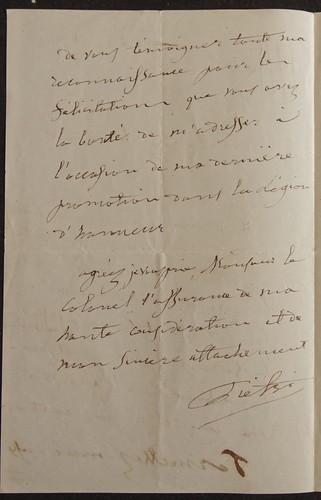 de vous témoigner toute ma
reconnaissance pour les
félicitations que vous avez
la bonté de m'adresser à
l'occasion de ma dernière
promotion dans la Légion
d'honneur
agréez je vous prie, Monsieur le
Colonel l'assurance de ma
haute considération et de
mon sincère attachement